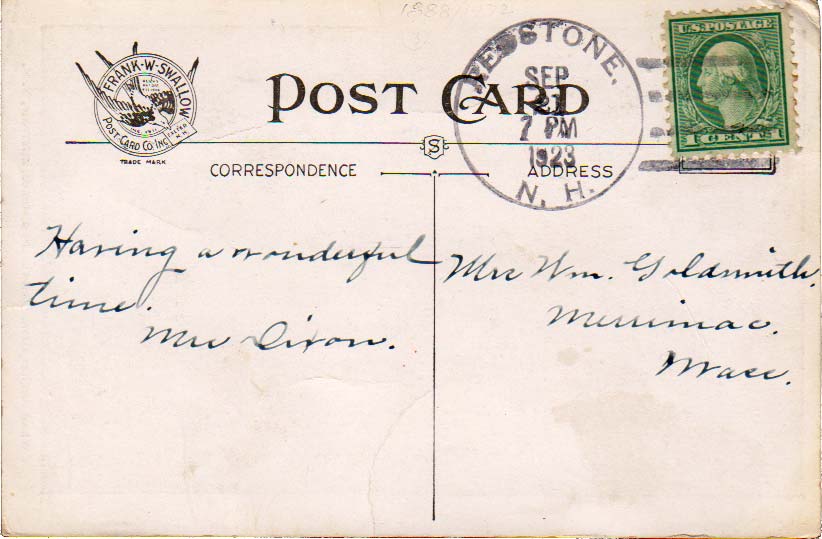 FRANK-W-SWALLOW
POST-CARD CO. INC.
EXETER N.H.
TRADE MARK
POST CARD
REDSTONE,
SEP
21
7 PM
1923
N. H.
U.S. POSTAGE
1 CENT 1
S
CORRESPONDENCE
ADDRESS
Having a wonderful
time.
Mrs Dixon.
Mrs Wm. Goldsmith,
Merrimac.
Mass.